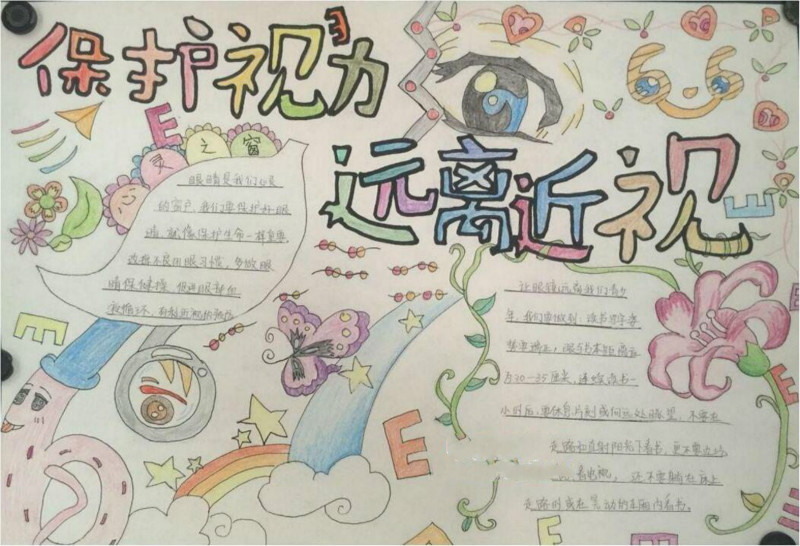 保护视力
远离近视
E
心灵之窗
眼睛是我们心灵
的窗户,我们要保护好眼
睛,就像保护生命一样重要
改掉不良用眼习惯,多做眼
睛保健操,使得眼部血
让眼镜远离我们青少
年,我们要做到:读书写字姿
势要端正,眼与书本距离应
为30-35厘米,连续读书一
小时后,要休息片刻或向远处眺望,不要在
走路和直射阳光下看书,更不要边
看电视,还不要躺在床上
走路时或在晃动的车厢内看书。
E
E
E
E
E